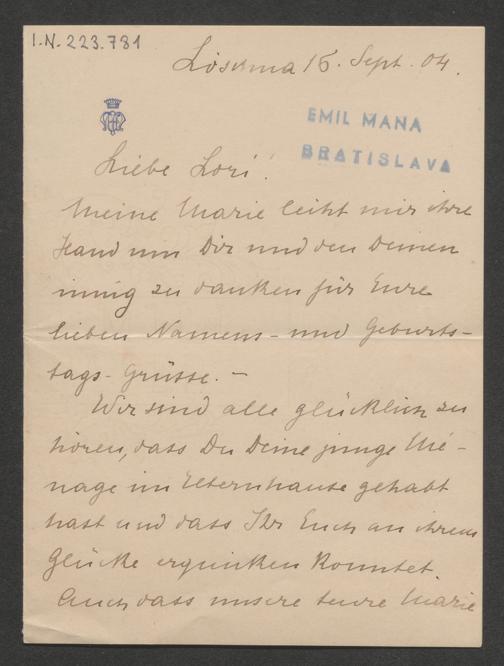 I.N. 223.781
Loschna 15. Sept. 04.
EMIL MANA
BRATISLAVA
Liebe Lori!
Meine Marie leiht mir ihre
Hand um Dir und den Deinen
innig zu danken für Eure
lieben Namens- und Geburts-
tags-Grüsse. -
Wir sind alle glücklich zu
hören, dass Du Deine junge Mé-
nage im Elternhause gehabt
hast und dass Ihr Euch an ihrem
Glücke erquicken konntet.
Auch dass unsere teure Marie